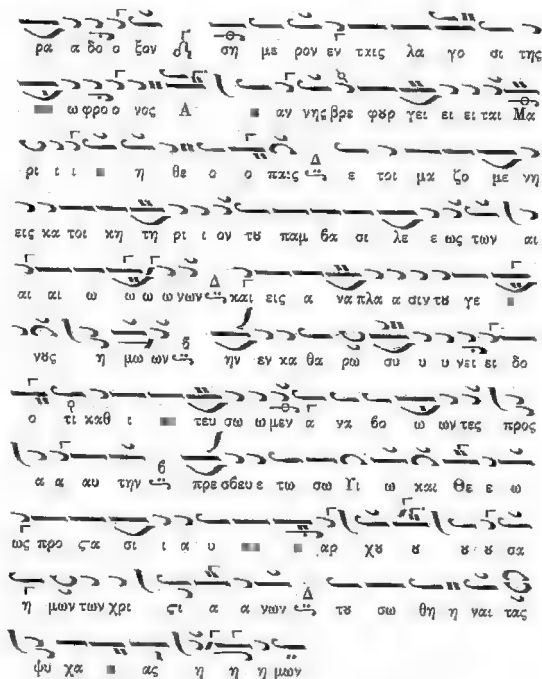 ρα α δο ο ξον σή με ρον εν ταις λα γο σι της
ω φρο ο νος Α αν νης βρε φȣρ γει ει ει ται Μα
ρι ι ι η θε ο ο παις Δ ε τοι μα ζο με νη
εις κα τοι κη τη ρι ι ον τȣ παμ βα σι λε ε ως των αι
αι αι ω ω ω ω νων Δ και εις α να πλα α σιν τȣ γε
νȣς η μω ων ϐ ην εν κα θα ρω συ υ υ νει ει δο
ο τι καθ ι τευ σω ω μεν α να βο ω ων τες προς
α α αυ την ϐ πρε σβευ ε τω σω Υι ω και Θε ε ω
ως προ ϛα σι ι α υ αρ χȣ ȣ ȣ ȣ σα
η μων των χρι ϛι α α νων Δ τȣ σω θη η ναι τας
ψυ χα ας η η η μων